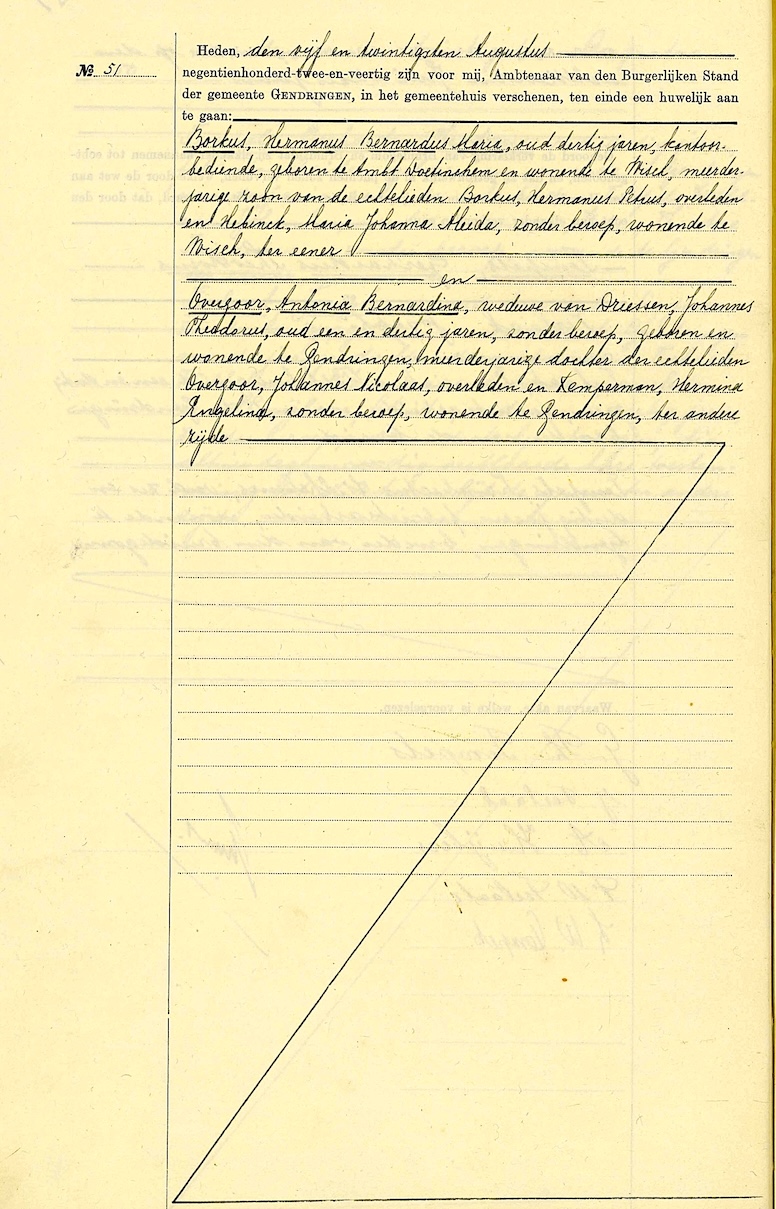 Heden, den vijf en twintigsten Augustus
No 51
negentienhonderd-twee-en-veertig zijn voor mij, Ambtenaar van den Burgerlijken Stand
der gemeente GENDRINGEN, in het gemeentehuis verschenen, ten einde een huwelijk aan
te gaan:
Borkus, Hermanus Bernardus Maria, oud dertig jaren, kantoor-
bediende, geboren te Ambt Doetinchem en wonende te Wisch, meerder-
jarige zoon van de echtelieden Borkus, Hermanus Petrus, overleden
en Hebinck, Maria Johanna Aleida, zonder beroep, wonende te
Wisch, ter eener
en
Overgoor, Antonia Bernardina, weduwe van Driessen, Johannes
Theodorus, oud een en dertig jaren, zonder beroep, geboren en
wonende te Gendringen, meerderjarige dochter der echtelieden
Overgoor, Johannes Nicolaas, overleden en Kemperman, Hermina
Angelina, zonder beroep, wonende te Gendringen, ter andere
zijde